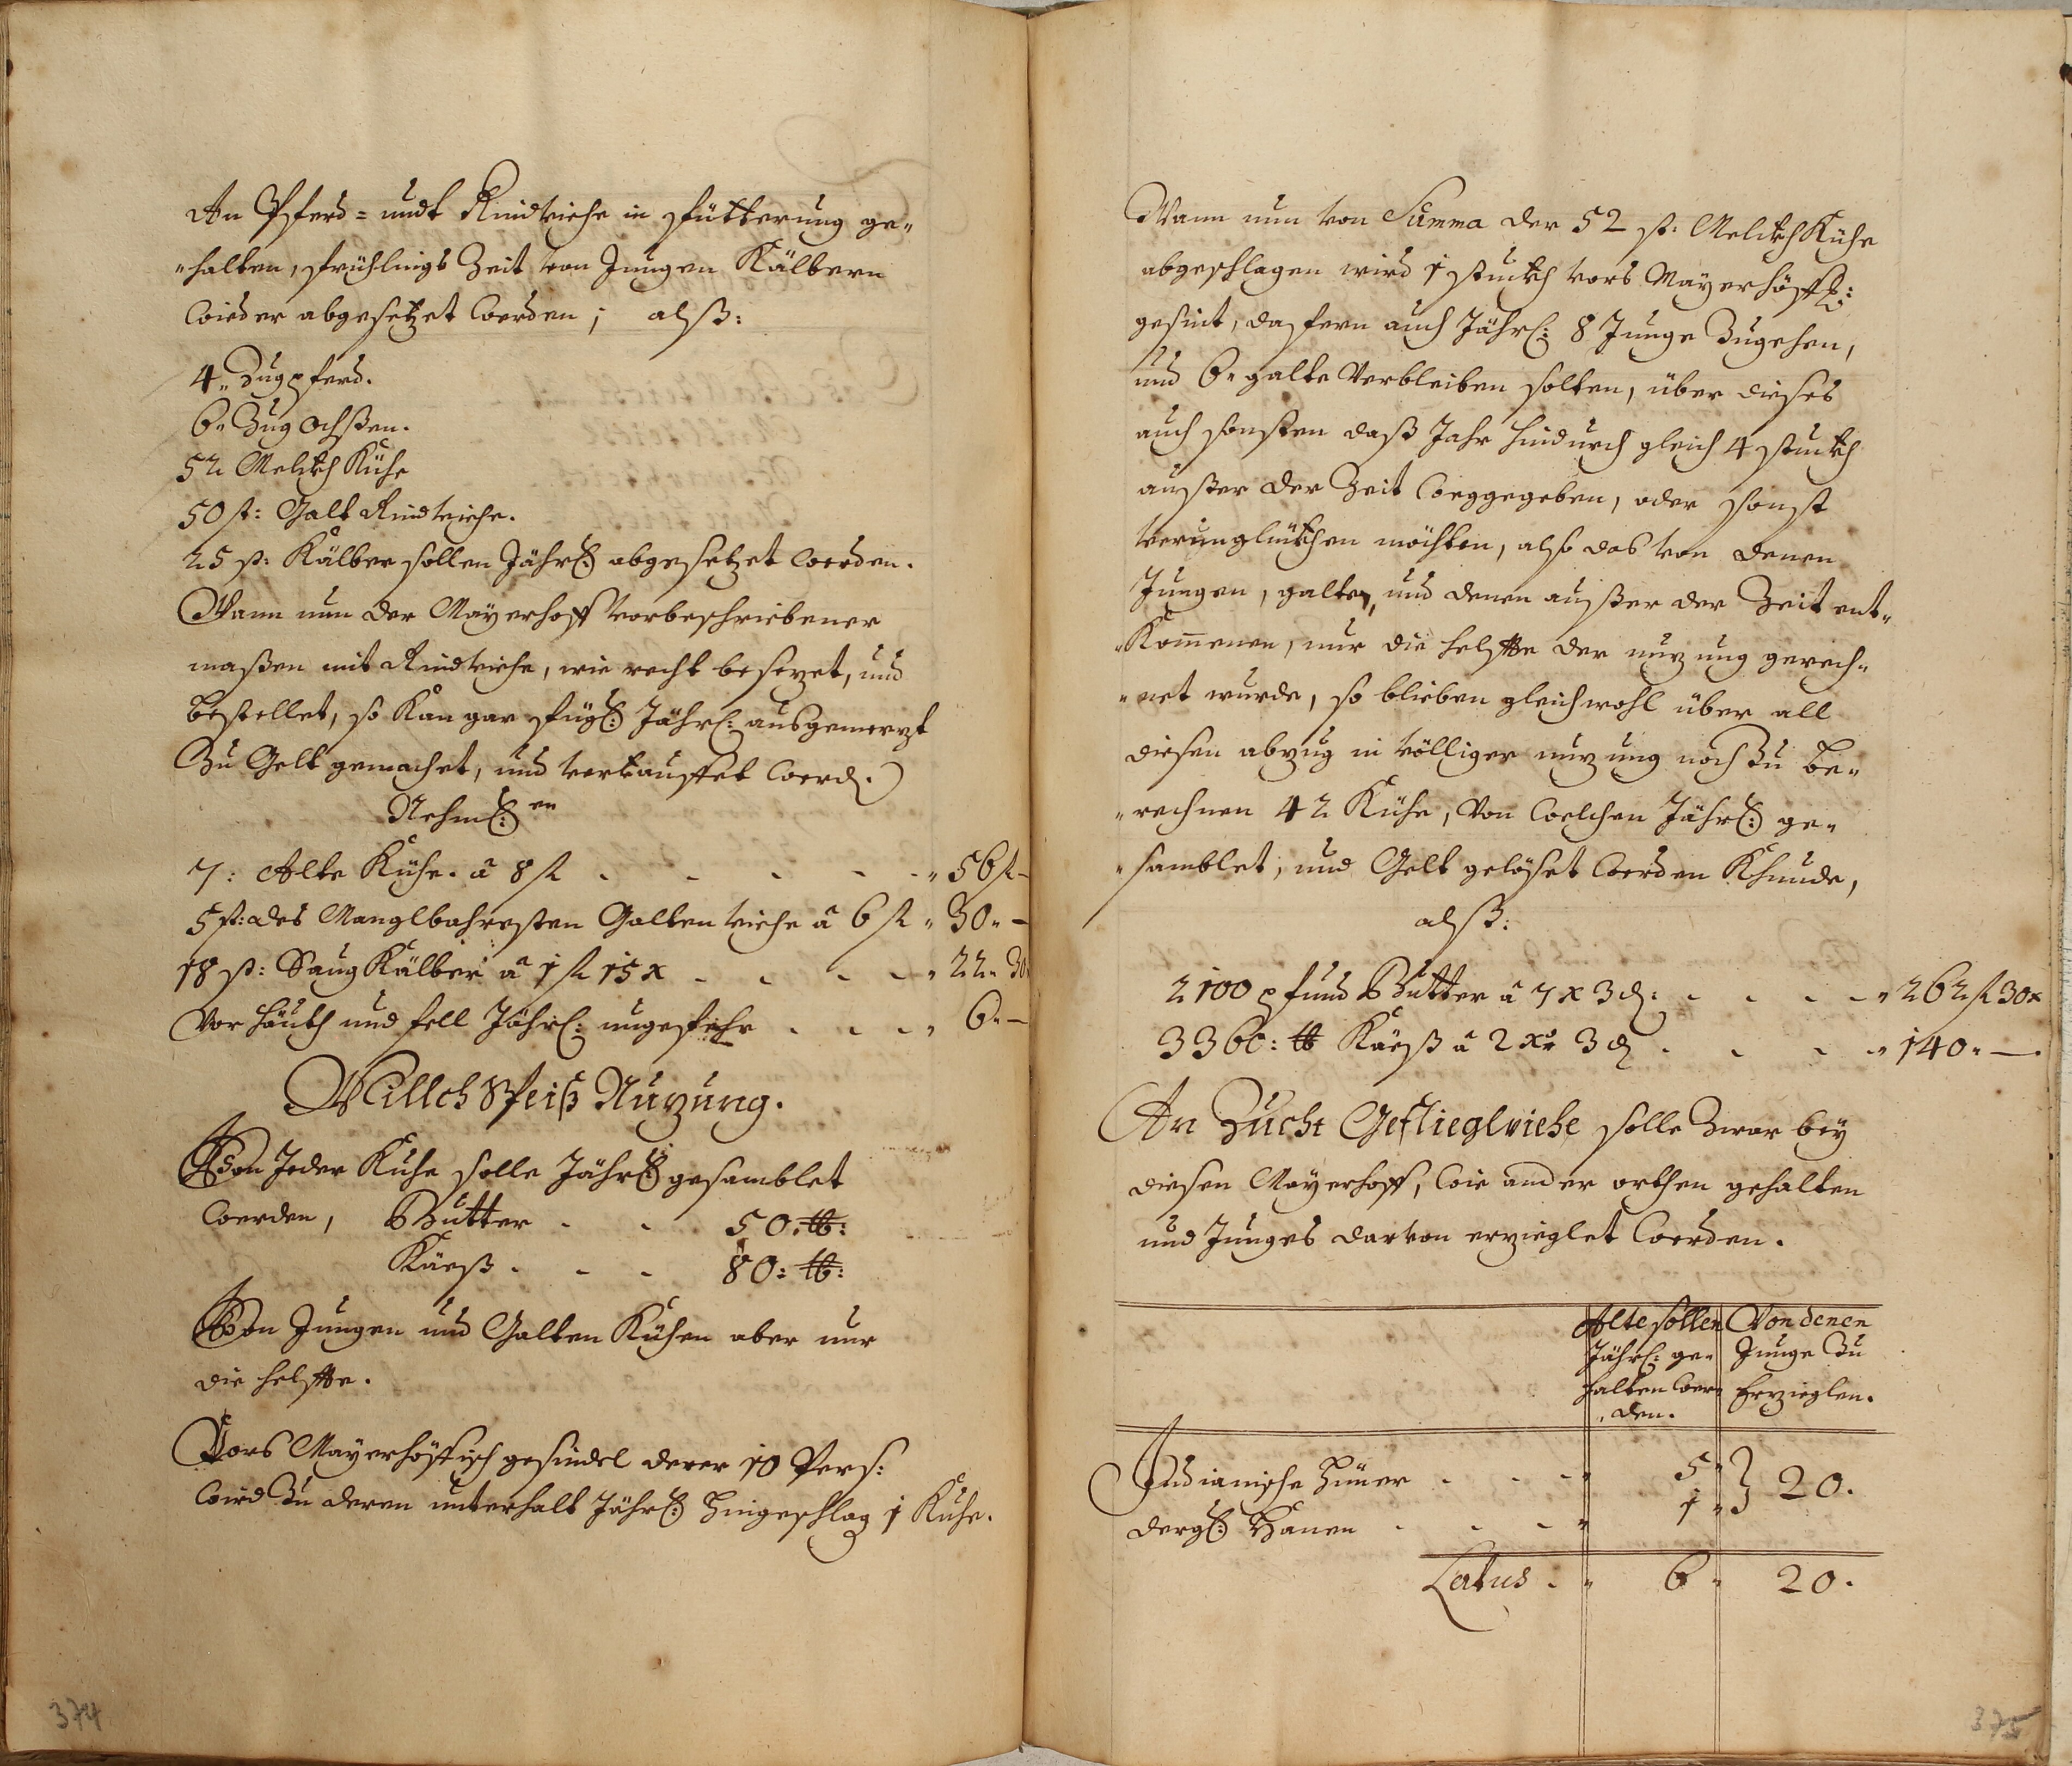 An Pferd= undt Rindviehe in sfütterung ge„
„halten, sfrühlings Zeit von Jungen Kälbern
wieder abgesetzet werden; alß:
4„ Zugpferd.
6„ Zug ochßen.
52 Melckh Kühe
50 st: Galt Rindviehe.
25 st: Kälber sollen Jährl: abgesetzet werden.
Wann nun der Mayerhoff vorbeschriebener
maßen mit Rindviehe, wie recht besezet, und
bestellet, so kan gar sfügl: Jährl: ausgemerzt
Zu Gelt gemachet, und verkauffet werd.
Nehml:en
7: Alte Kühe. â 8 fl . . . . . „ 56 fl —
5 st: des Manglbahresten Galten viehe â 6 fl „ 30„ —
18 st: Saug Kälber â 1 fl 15 x . . . . „ 22„ 30
Vor häuth und fell Jährl: ungefehr . . . „ 6„ —
Millch Speiß Nuzung.
Von Jeder Kuhe solle Jährl: gesamblet
werden, Butter . . 50: ℔:
Käeß . . . 80: ℔:
Von Jungen und Galten Kühen aber nur
die helffte.
Vors Mayerhöffisch gesindel derer 10 Pers:
wird Zu deren unterhalt Jährl: Hingeschlag 1 Kuhe.
374
Wann nun von Summa der 52 st: Melckh Kühe
abgeschlagen wird 1 stuckh vors Mayerhöffl:
gesint, dasfern auch Jährl: 8 Junge Zugehen,
und 6„ galte Verbleiben solten, über dieses
auch sonsten daß Jahr hindurch gleich 4 stuckh
außer der Zeit weggegeben, oder sonst
verunglückhen möchten, also das von denen
Jungen, galten, und denen außer der Zeit ent„
„Kom̄enen, nur die helffte der nuzung gerech„
„net wurde, so blieben gleichwohl über all
diesen abzug in völliger nuzung noch Zu be„
„rechnen 42 Kühe, Von welchen Jährl: ge„
„samblet, und Gelt gelöset werden Khunde,
alß:
2100 pfund Butter â 7 x 3 d: . . . . „ 262 fl 30 x
3360: ℔ Käeß â 2 xr 3 d . . . . „ 140„ —.
An Zucht Geflieglviehe solle Zwar bey
diesen Mayerhoff, wie ander orthen gehalten
und Junges darvon erzieglet werden.
Alte sollen Jährl: ge„ halten wer„ „den.
Von denen Junge Zu Erzieglen.
Indianische Hüner . . . „ 5„ } 20.
dergl: Hanen . . . „ 1„
Latus . „ 6 „ 20.
375